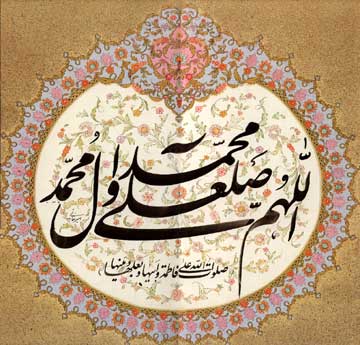 اللّٰهمّ صل علی محمد وآل محمّد
صلوات الله علی فاطمة وابیها وبعلها وبنیها